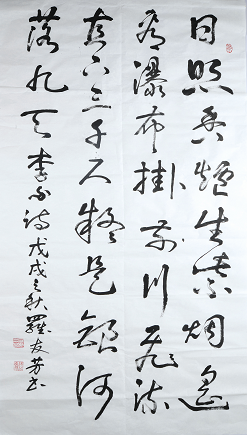 日照香爐生紫烟遥
看瀑布掛前川飛流
直下三千尺疑是銀河
落九天 李白诗 戊戌之秋 羅友芳书